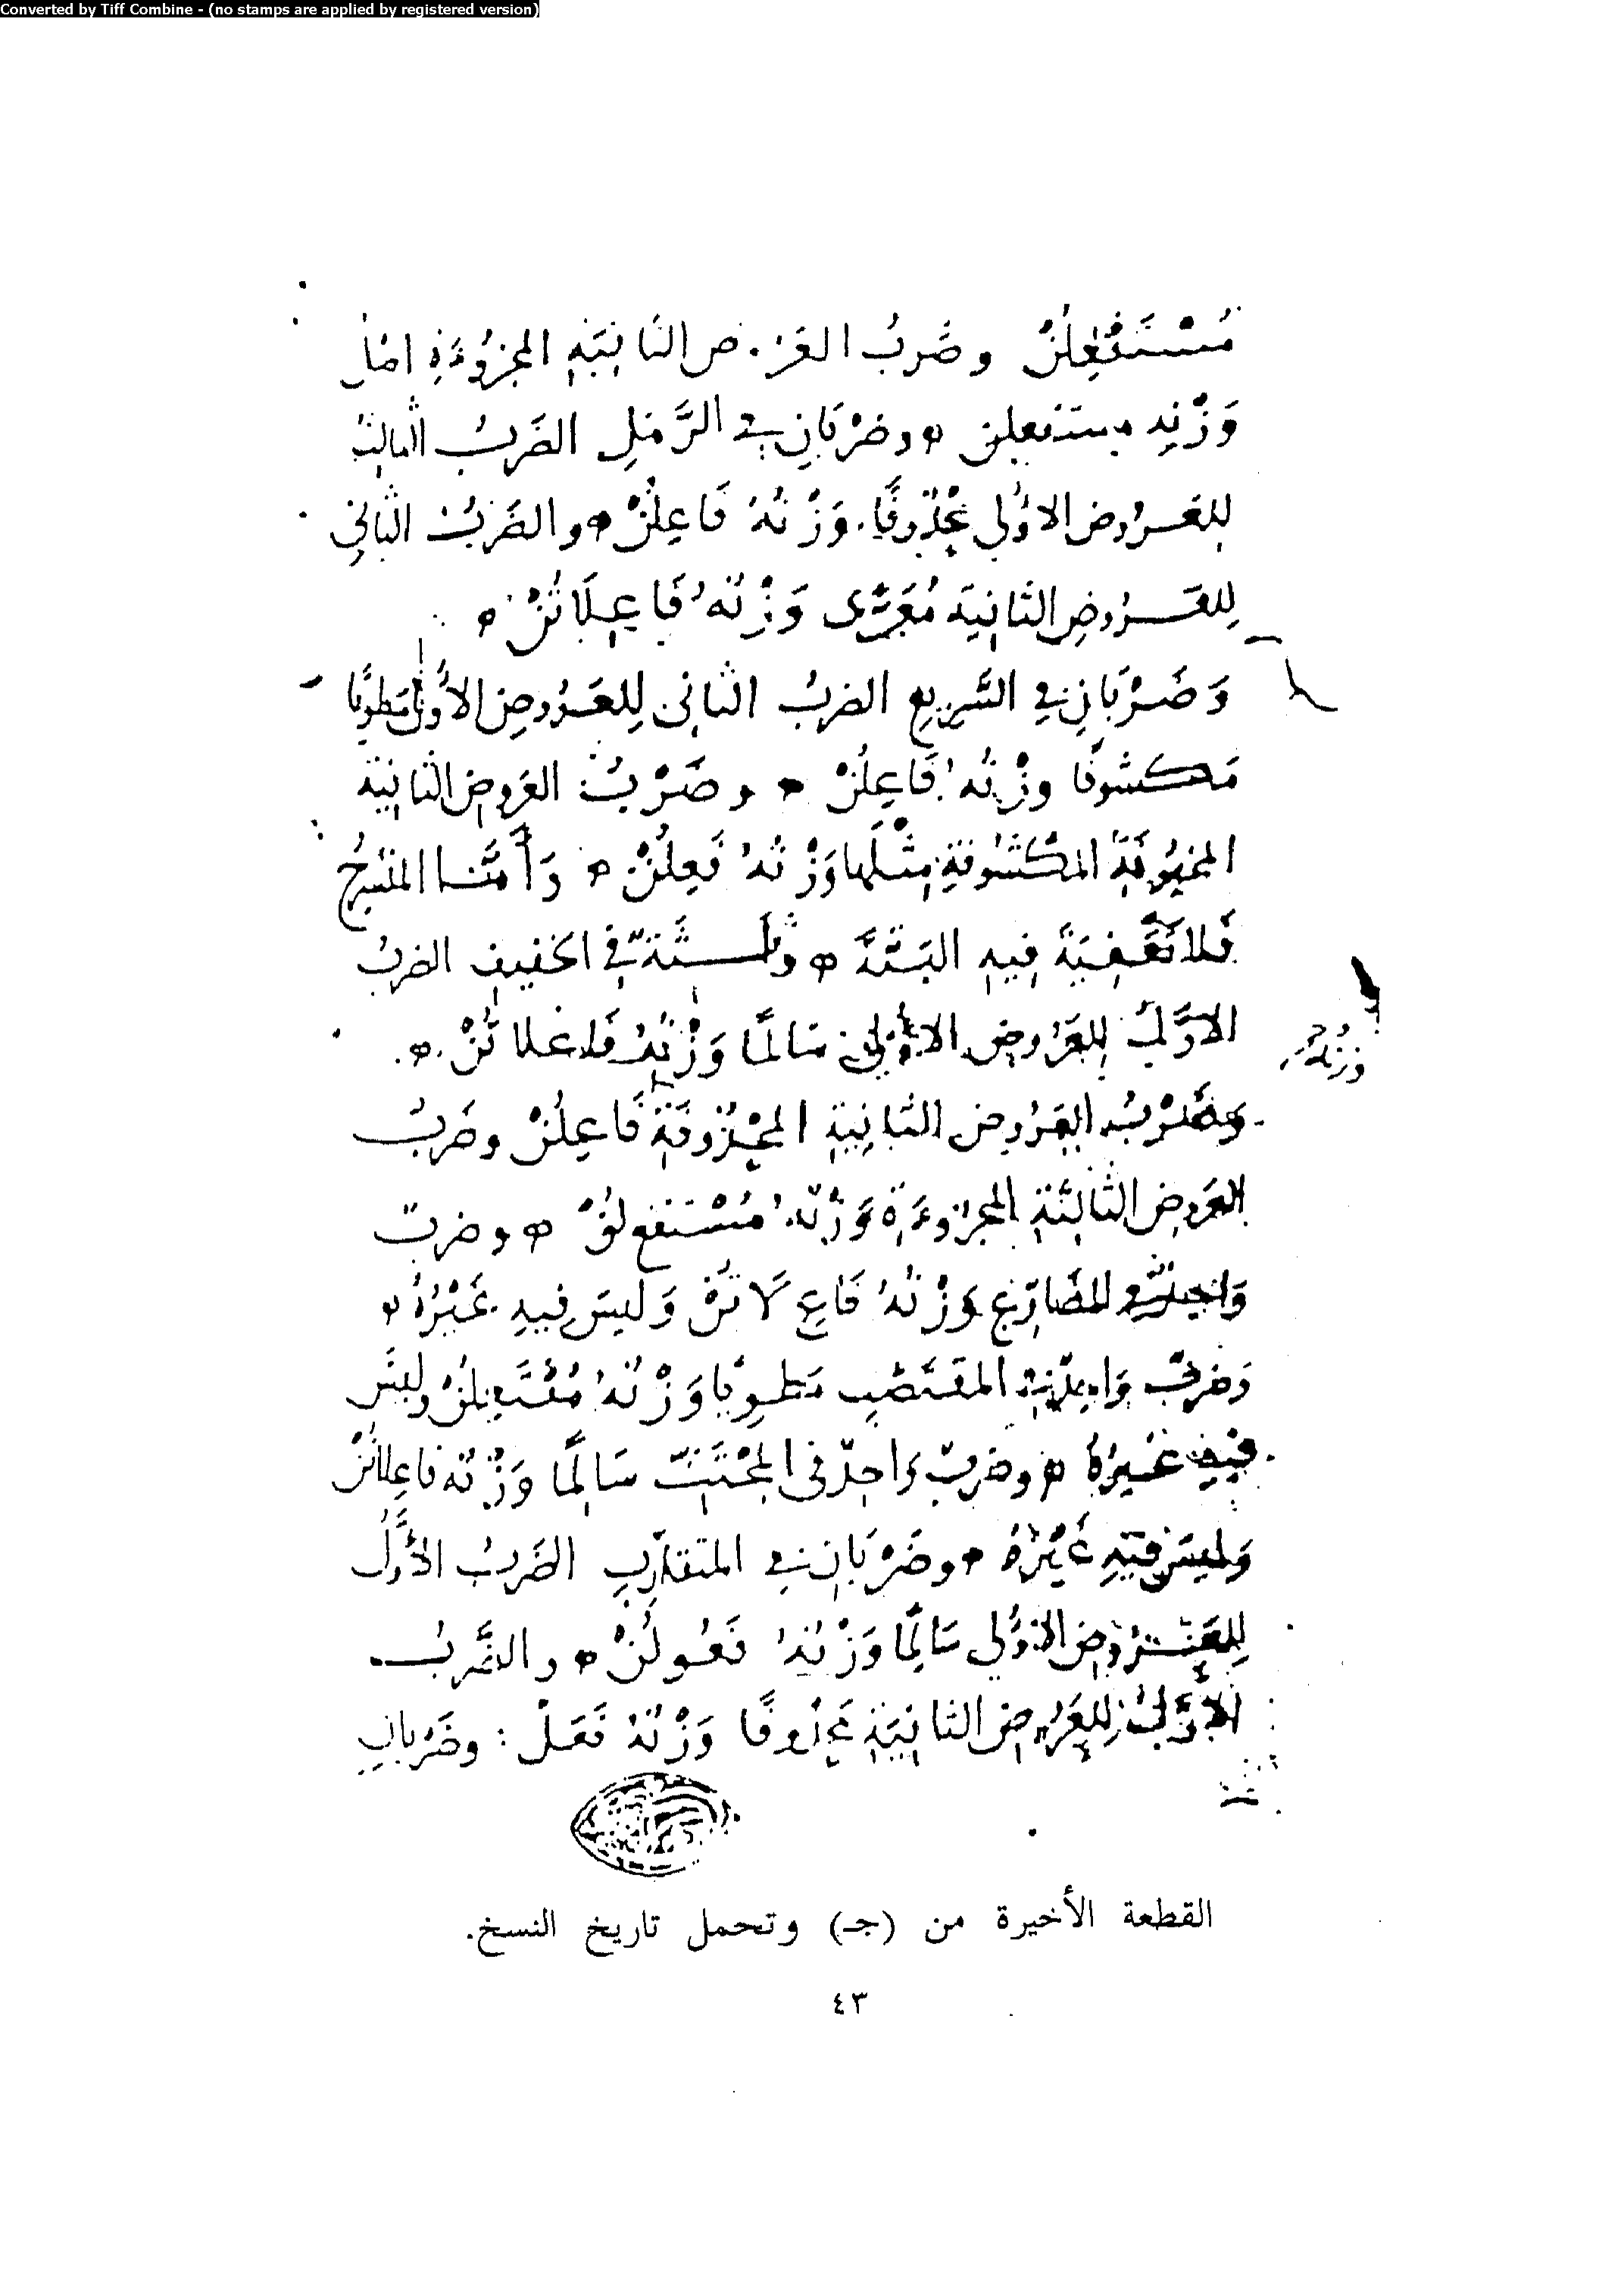 Converted by Tiff Combine - (no stamps are applied by registered version)
مُسْتَفْعِلُنْ وضَربُ العَرُوض الثَانِيَةِ المجزوُءَةِ
وَزْنه مستفعلن ٥ وضَرْبَانِ في الرَّمَلِ الضَربُ الثالث
لِلعَرُوض الاوُلى مَحْذُوفًا وَزْنُهُ فَاعِلُنْ ٥ والضَربُ الثاني
لِلعَرُوضِ الثَانِيَة مُعَرًّى وَزْنُهُ فَاعِلَاتُنْ ٥
وَضَرْبَانِ في السَّرِيعِ الضربُ الثانى لِلعَرُوضِ الأوُلَى مَطوِيًا
مَكشوفًا وزْنُهُ فَاعِلُنْ ٥ وضَرْبُ العَروض الثَانِية
المخبُونَةِ المكْشُوفَةِ مِثْلَها وَزْنُهُ فَعِلُنْ ٥ وَأَمَّا المنْسَرِحُ
فَلا تَقْفِيَةَ فِيهِ البَتَّةَ ٥ وثَلَثَةٌ فِي الخفيفِ الضربُ
الاوَّلُ لِلعَرُوضِ الاوُلَى سَالمًا وَزْنُهُ فَاعلاتُنْ ٥
وزنُهُ
وضَرْبُ العَرُوض الثَانِيَةِ المحْذُوفَةِ فَاعِلُنْ وضَربُ
العَروض الثَالِثَةِ المجزوءَةِ وَزْنُهُ مُسْتَفعِ لُنْ ٥ وضربٌ
وَاحِدٌ المضَارِع وَزْنُهُ فَاعِ لَاتُنْ وَليسَ فِيهِ غَيْرُهُ ٥
وَضربٌ وَاحِدٌ في المقتَضَبِ مَطوِيًا وَزْنُهُ مُفْتَعِلُنْ وليسَ
فِيهِ غَيرُهُ ٥ وضربٌ وَاحِدٌ فى المجْتَثِّ سَالِمًا وَزْنُه فاعِلاتُنْ
وَليسَ فِيهِ غَيْرُهُ ٥ وضَرْبَانِ في المتقَارِبِ الضَربُ الأَوَّلُ
لِلعَرُوض الاوُلى سَالِمًا وَزْنُهُ فَعُولُنْ ٥ والضَّربُ
الاوَّلُ لِلعَرُوض الثانِيَةِ مَحذوفًا وَزْنُهُ فَعَلْ : وضَرْبانِ
القطعة الأخيرة من (جـ) وتحمل تاريخ النسخ.
٤٣